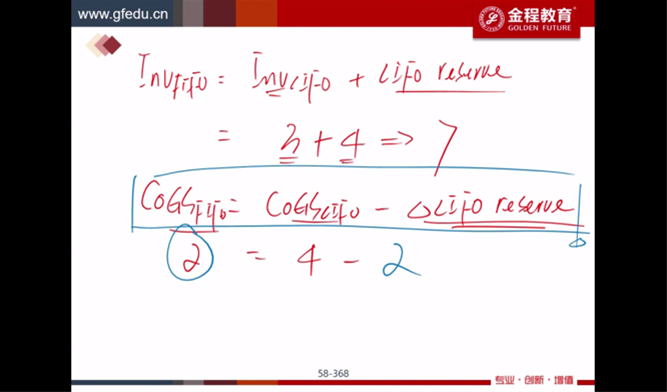 www.gfedu.cn
金程教育
GOLDEN FUTURE
InvFIFO = InvLIFO + LIFO reserve
= 3 + 4 => 7
COGSFIFO = COGSLIFO - △LIFO reserve
2 = 4 - 2
58-368
专业·创新·增值